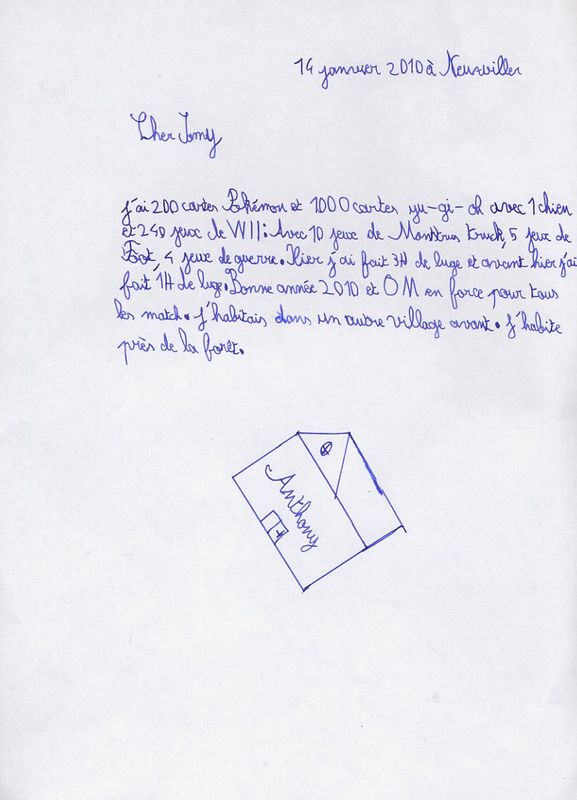 14 janvier 2010 à Neuwiller
Cher Jomy
j'ai 200 cartes Pokémon et 1000 cartes yu-gi-oh avec 1 chien
et 240 jeux de WII: Avec 10 jeux de Monstrus truck, 5 jeux de
Foot, 4 jeux de guerre. Hier j'ai fait 3H de luge et avant hier j'ai
fait 1H de luge. Bonne année 2010 et OM en force pour tous
les match. j'habitais dans un autre village avant. j'habite
près de la forêt.
Anthony